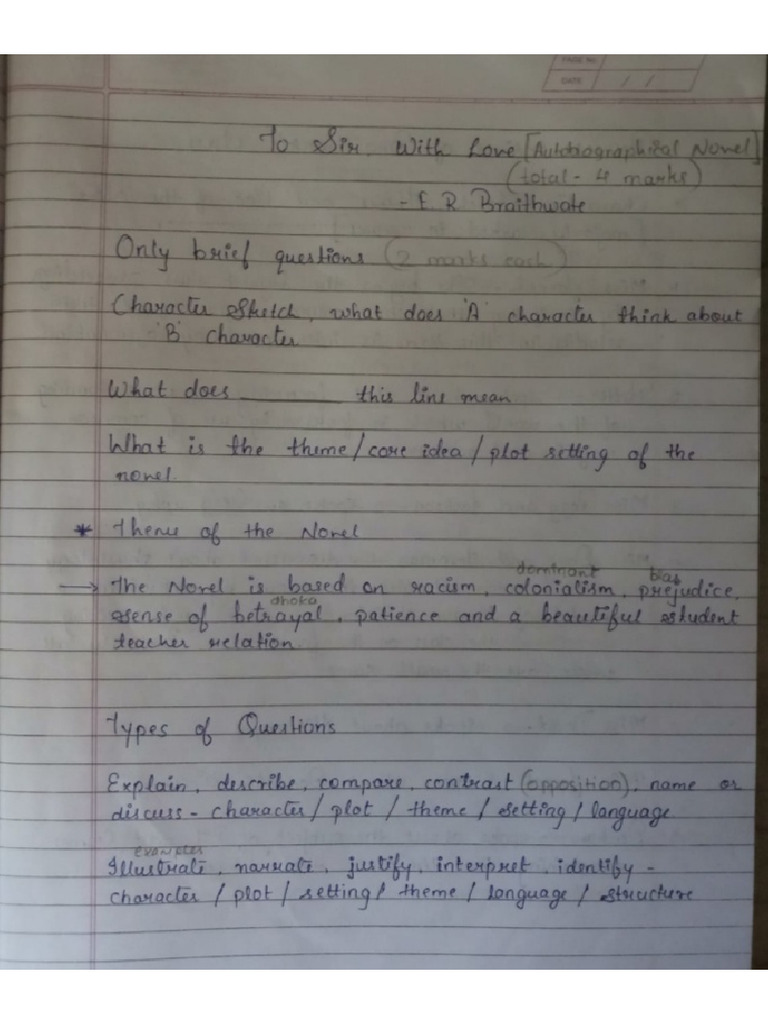 PAGE No.
DATE / /
To Sir, With Love [Autobiographical Novel]
(total - 4 marks)
- E. R. Braithwate
Only brief questions (2 marks each)
Character Sketch, what does 'A' character think about
'B' character
What does ________ this line mean
What is the theme / core idea / plot setting of the
novel.
* Theme of the Novel
dominant bias
→ The Novel is based on racism, colonialism, prejudice,
dhoka
sense of betrayal, patience and a beautiful student
teacher relation.
Types of Questions
Explain, describe, compare, contrast (opposition), name or
discuss - character / plot / theme / setting / language
examples
Illustrate, narrate, justify, interpret, identify -
character / plot / setting / theme / language / structure